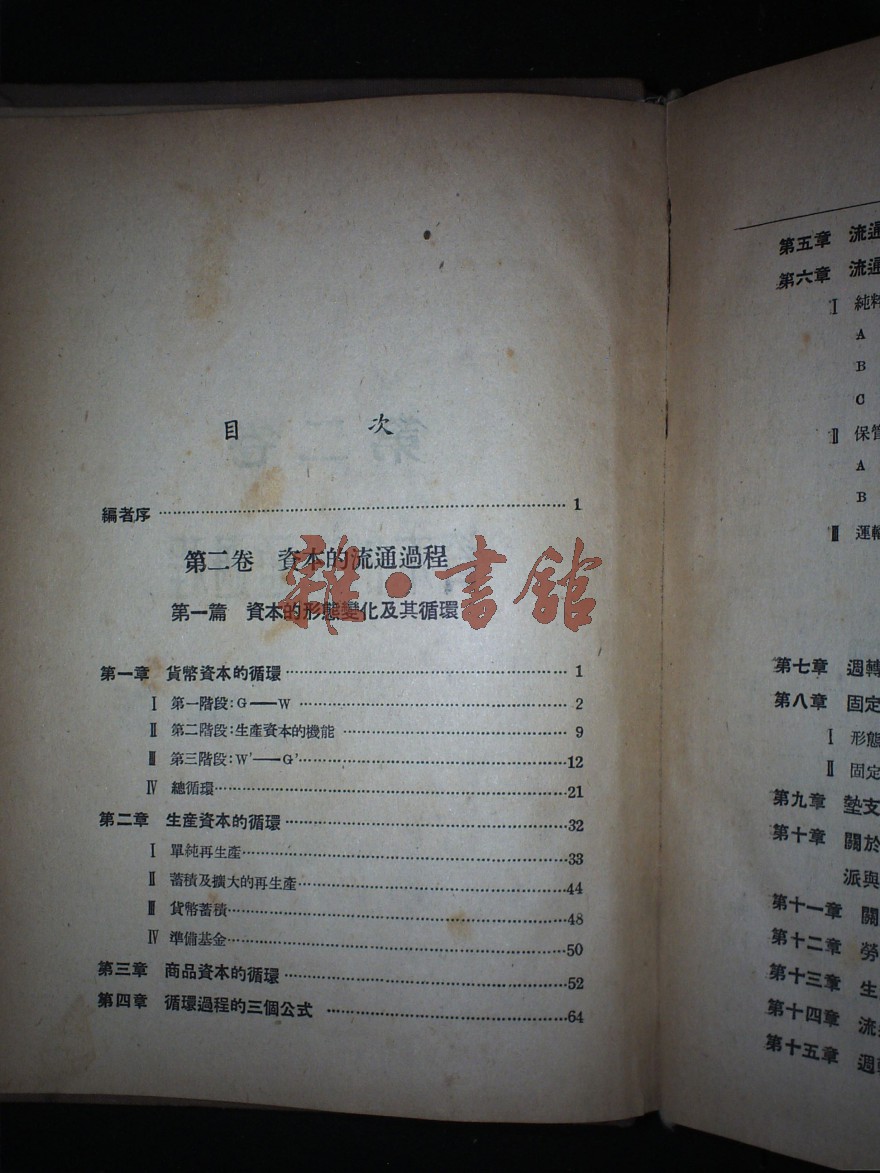 目 次
編者序 1
第二卷 資本的流通過程
第一篇 資本的形態變化及其循環
雜·書館
第一章 貨幣資本的循環 1
Ⅰ 第一階段:G——W 2
Ⅱ 第二階段:生產資本的機能 9
Ⅲ 第三階段:W'——G' 12
Ⅳ 總循環 21
第二章 生產資本的循環 32
Ⅰ 單純再生產 33
Ⅱ 蓄積及擴大的再生產 44
Ⅲ 貨幣蓄積 48
Ⅳ 準備基金 50
第三章 商品資本的循環 52
第四章 循環過程的三個公式 64
第五章 流通
第六章 流通
Ⅰ 純粹
A
B
C
Ⅱ 保管
A
B
Ⅲ 運輸
第七章 週轉
第八章 固定
Ⅰ 形態
Ⅱ 固定
第九章 墊支
第十章 關於
派與
第十一章 關
第十二章 勞
第十三章 生
第十四章 流
第十五章 週轉